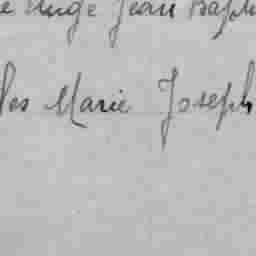 e Ange Jean Bapti
les Marie Joseph